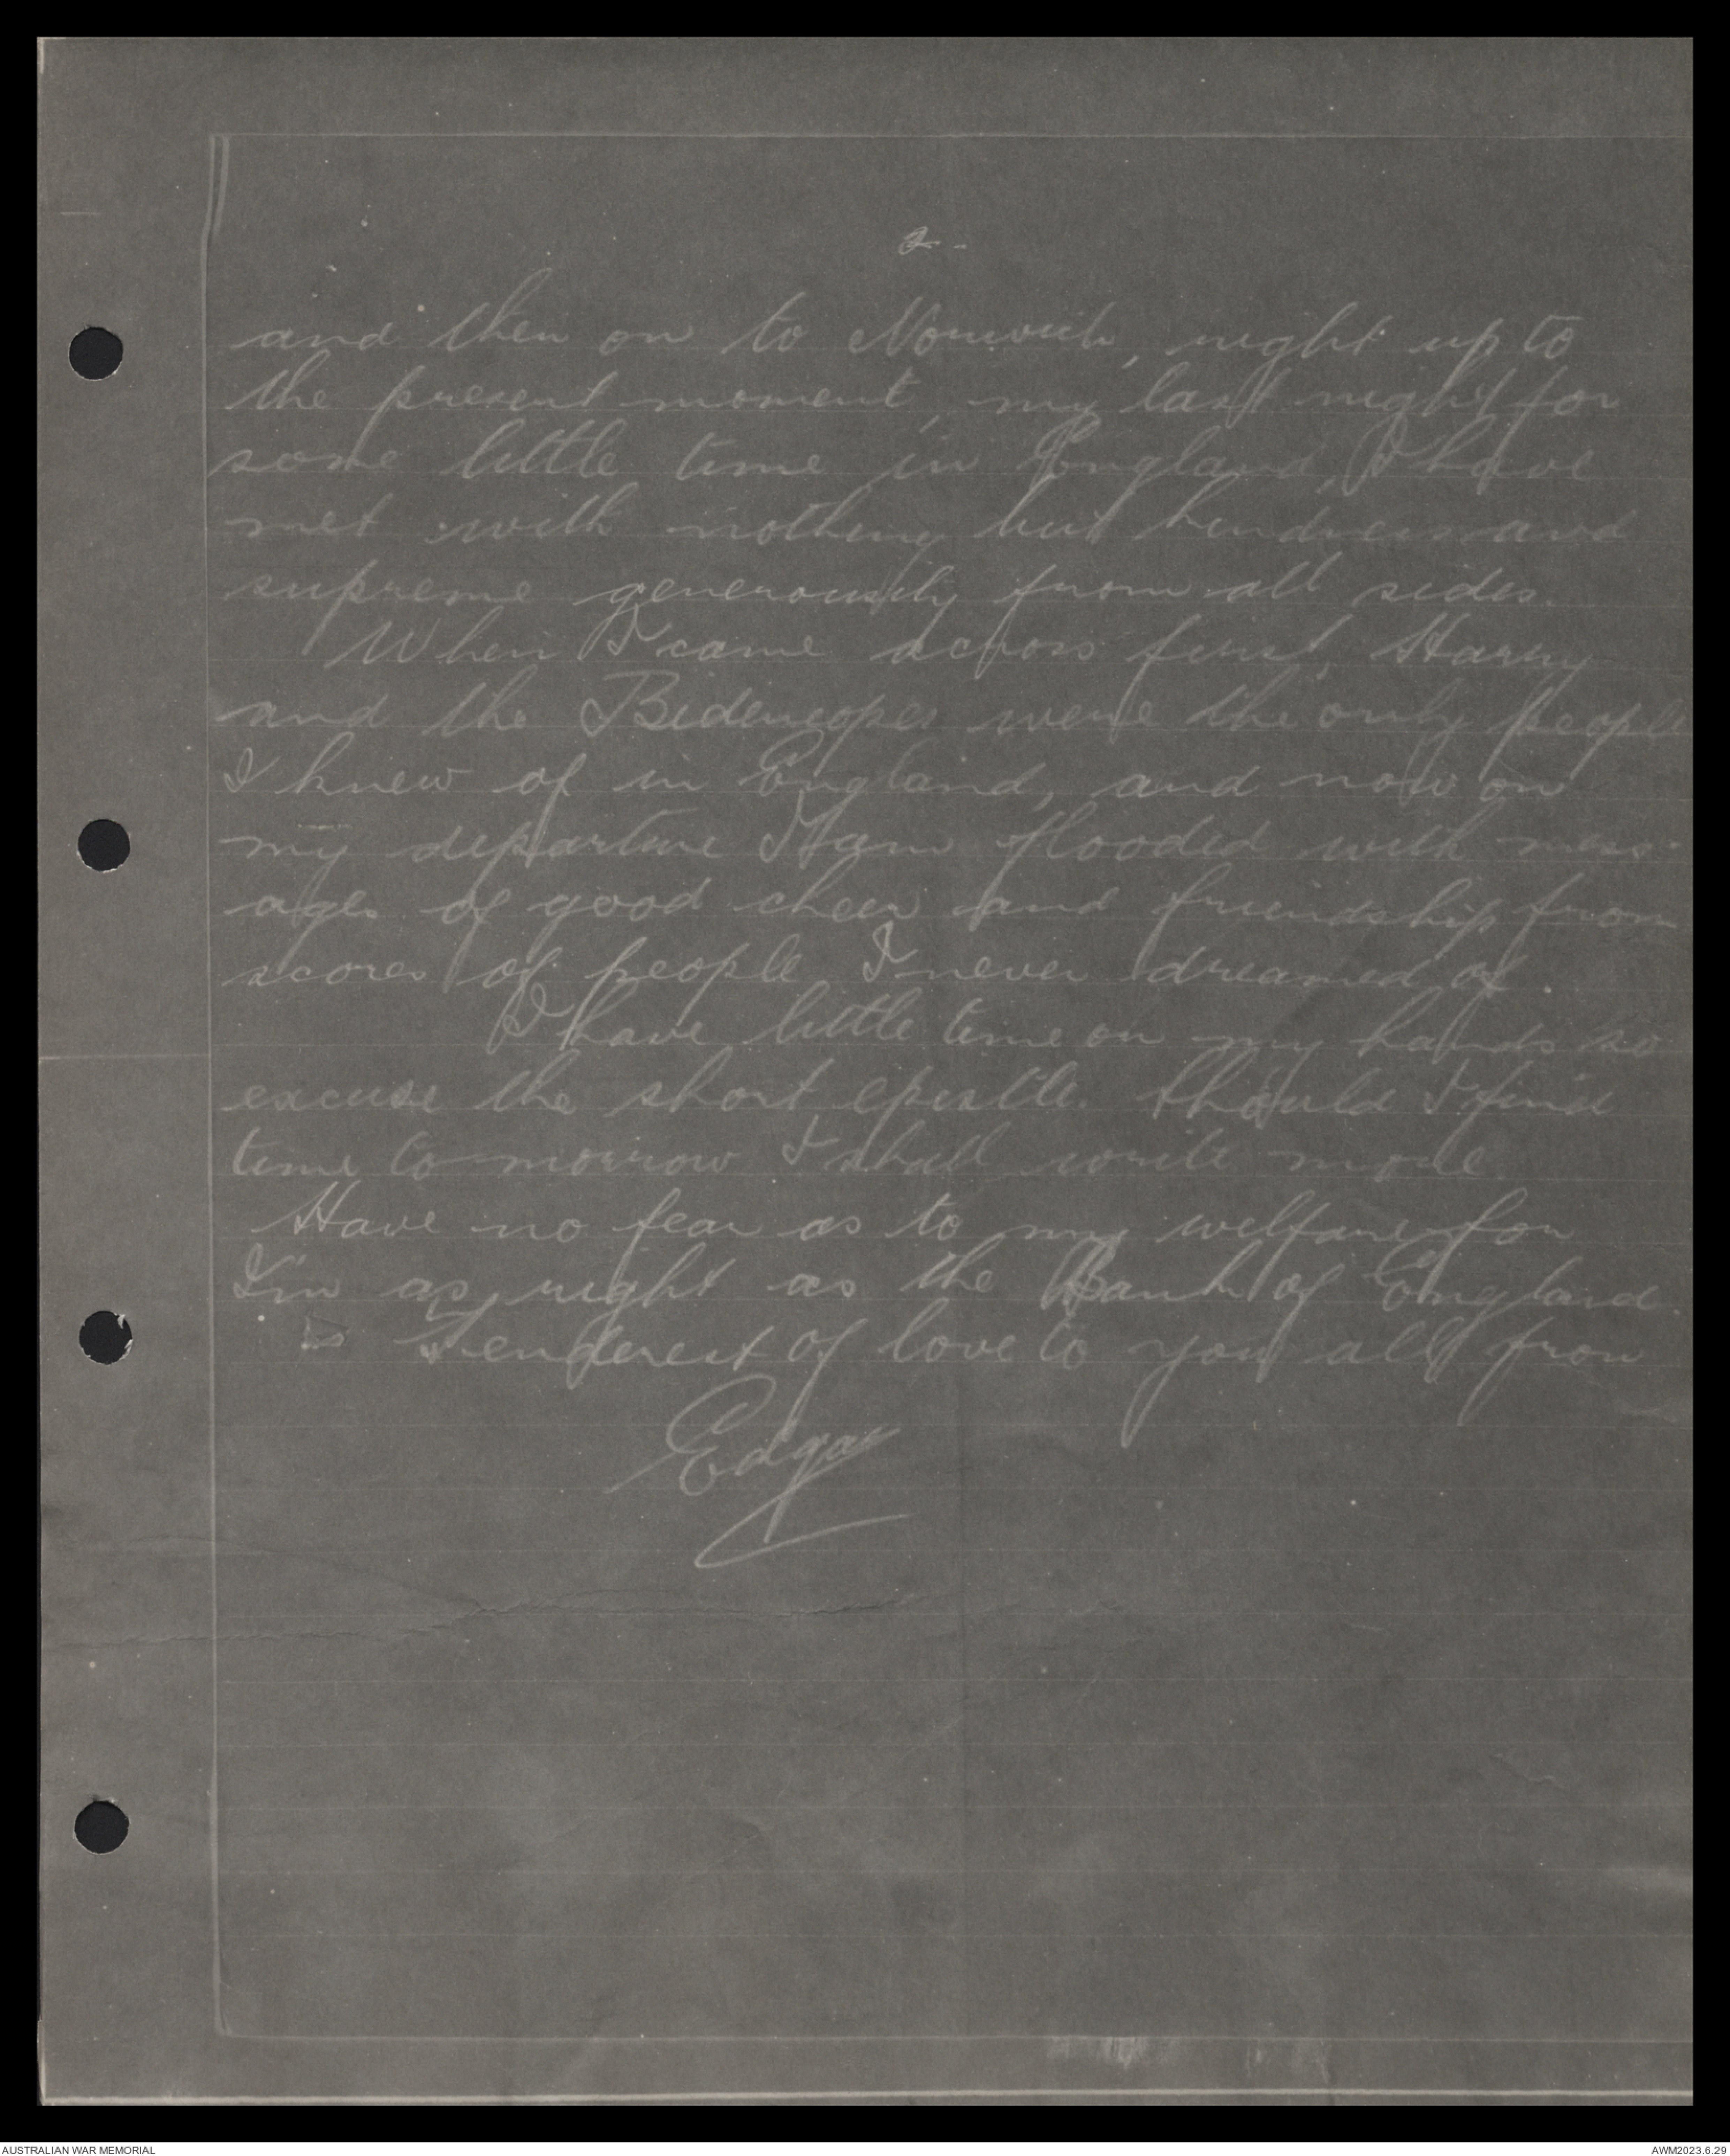 2 -
and then on to Norwich, right up to
the present moment, my last night for
some little time in England, I have
met with nothing but kindness and
supreme generousity from all sides.
When I came across first, Harry
and the Bidencopes were the only people
I knew of in England, and now on
my departure I am flooded with mess-
ages of good cheer and friendship from
scores of people I never dreamed of.
I have little time on my hands so
excuse the short epistle. Should I find
time tomorrow I shall write more
Have no fear as to my welfare for
I'm as right as the Bank of England.
Tenderest of love to you all from
Edgar
AUSTRALIAN WAR MEMORIAL
AWM2023.6.29